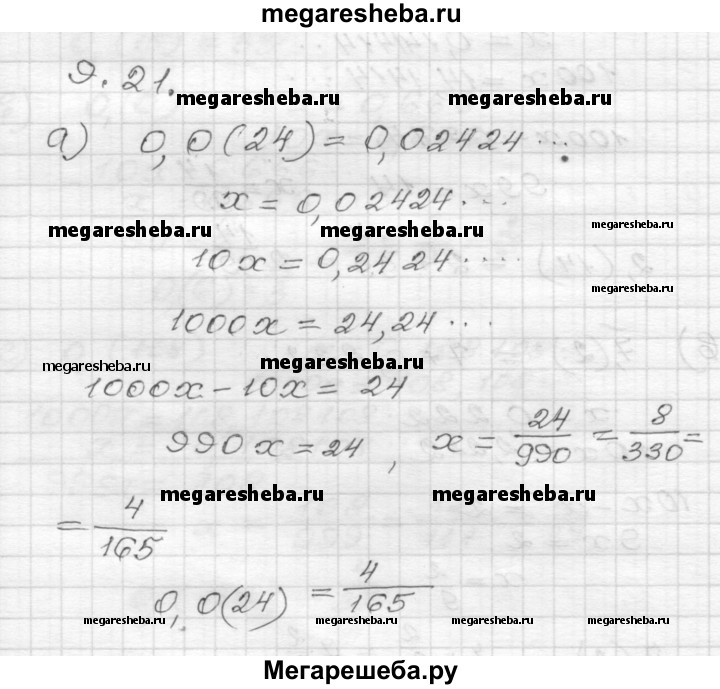 megaresheba.ru
9.21.
megaresheba.ru megaresheba.ru
а) 0,0(24) = 0,02424...
x = 0,02424...
megaresheba.ru megaresheba.ru megaresheba.ru
10x = 0,2424....
megaresheba.ru
1000x = 24,24...
megaresheba.ru megaresheba.ru
1000x - 10x = 24
990x = 24, x = 24/990 = 8/330 =
megaresheba.ru megaresheba.ru
= 4/165
0,0(24) = 4/165
megaresheba.ru megaresheba.ru megaresheba.ru megaresheba.ru
Мегарешеба.ру